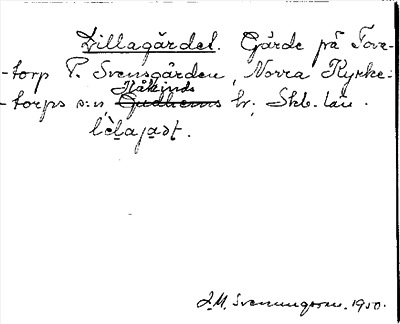 Lillagärdet. Gärde på Tove-
-torp P. Svensgården, Norra Kyrke-
-torps s:n, Kåkinds hr, Skb. län.
lèlajaḍt.
J.M. Svenungsson. 1950.